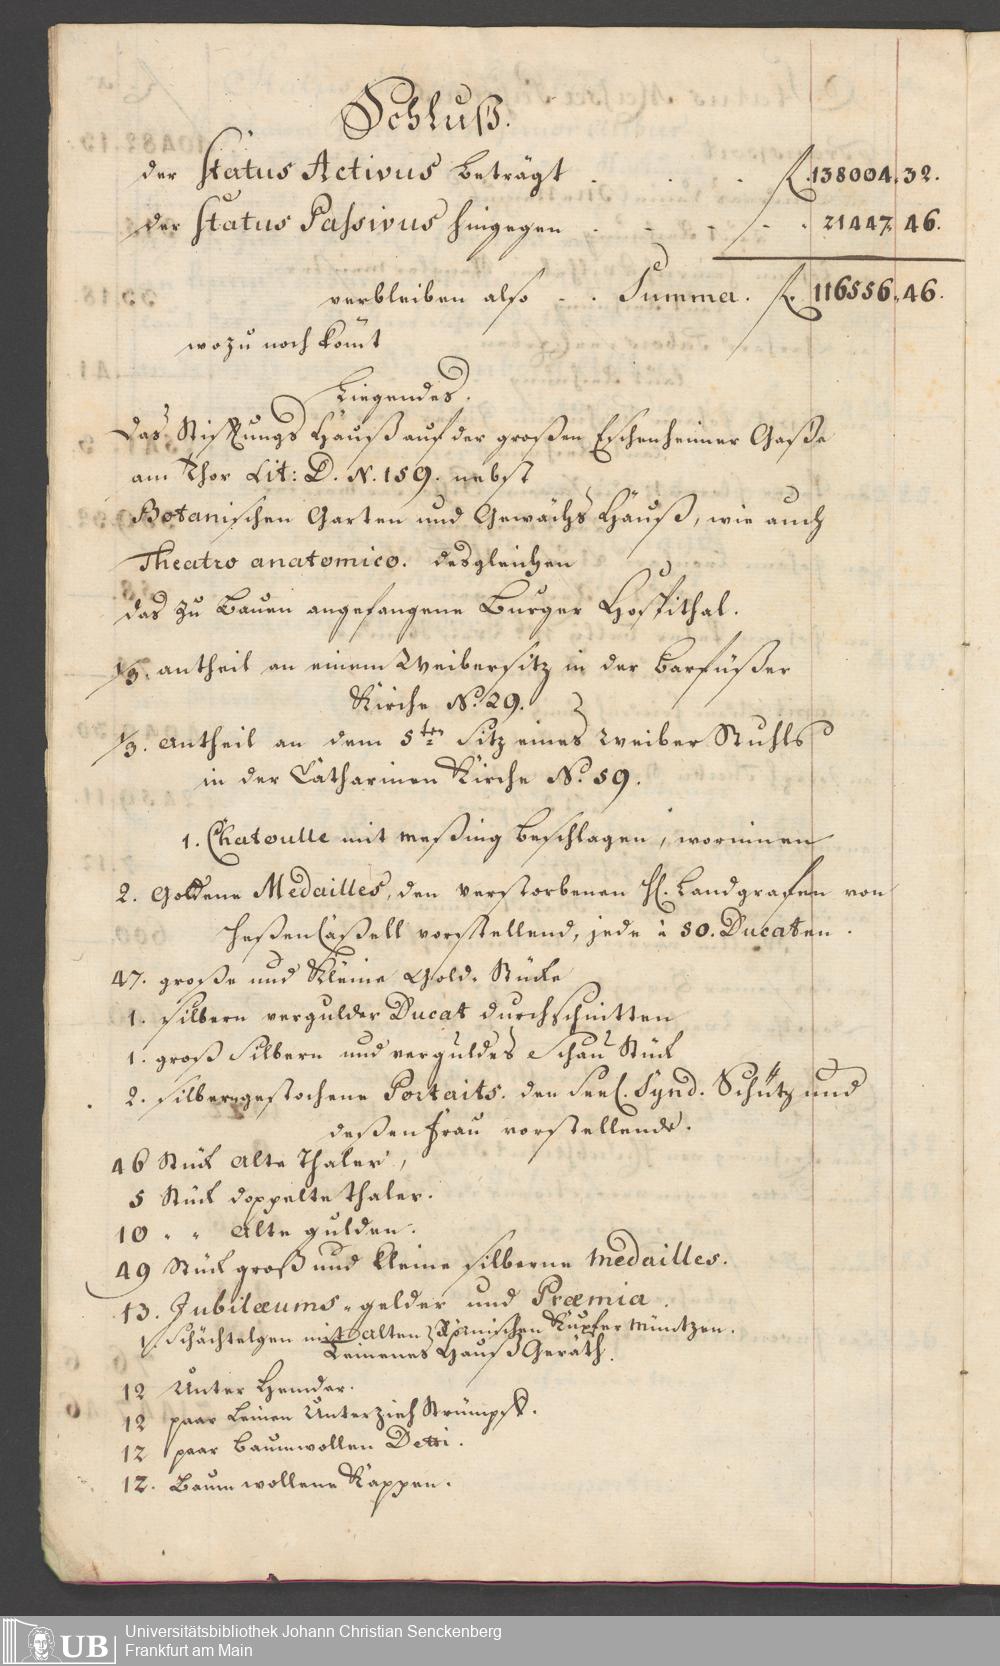 Schluß.
der Status Activus beträgt . . . f. 138004. 32.
der Status Passivus hingegen . - - - . 21447. 46.
verbleiben also - . Summa. f. 116556. 46.
wozu noch komt
Liegendes.
Das Stiftungs Hauß auf der großen Eschenheimer Gaße
am Thor Lit: D. N. 159. nebst
Botanischen Garten und Gewächs Hauß, wie auch
Theatro anatomico. desgleichen
das zu bauen angefangene Burger Hospithal.
1/3. antheil an einem Weibersitz in der Barfüßer
Kirche No. 29.
1/3. Antheil an dem 5ten Sitz eines Weiber Stuhls
in der Catharinen Kirche No. 59.
1. Chatoulle mit meßing beschlagen, worinnen
2. Goldene Medailles, den verstorbenen H. Landgrafen von
Heßen Caßell vorstellend, jede à 50. Ducaten.
47. große und Kleine Gold. Stücke
1. silbern vergulder Ducat durchschnitten
1. groß silbern und verguldes Schau Stück
2. silberngestochene Portaits. den Seel. Synd. Schütz und
deßen Frau vorstellende.
46 Stück Alte Thaler,
5 Stück doppelte thaler.
10 " " Alte gulden.
49 Stück groß und kleine silberne medailles.
13. Jubilæums-gelder und Præmia.
1. Schächtelgen mit alten Römischen Kupfer müntzen.
Leinenes Hauß Geräth.
12 Unter Hemder.
12 paar Leinen Unterzieh Strümpf.
12 paar baumwollen Detti.
12. Baumwollene Kappen.
UB Universitätsbibliothek Johann Christian Senckenberg
Frankfurt am Main